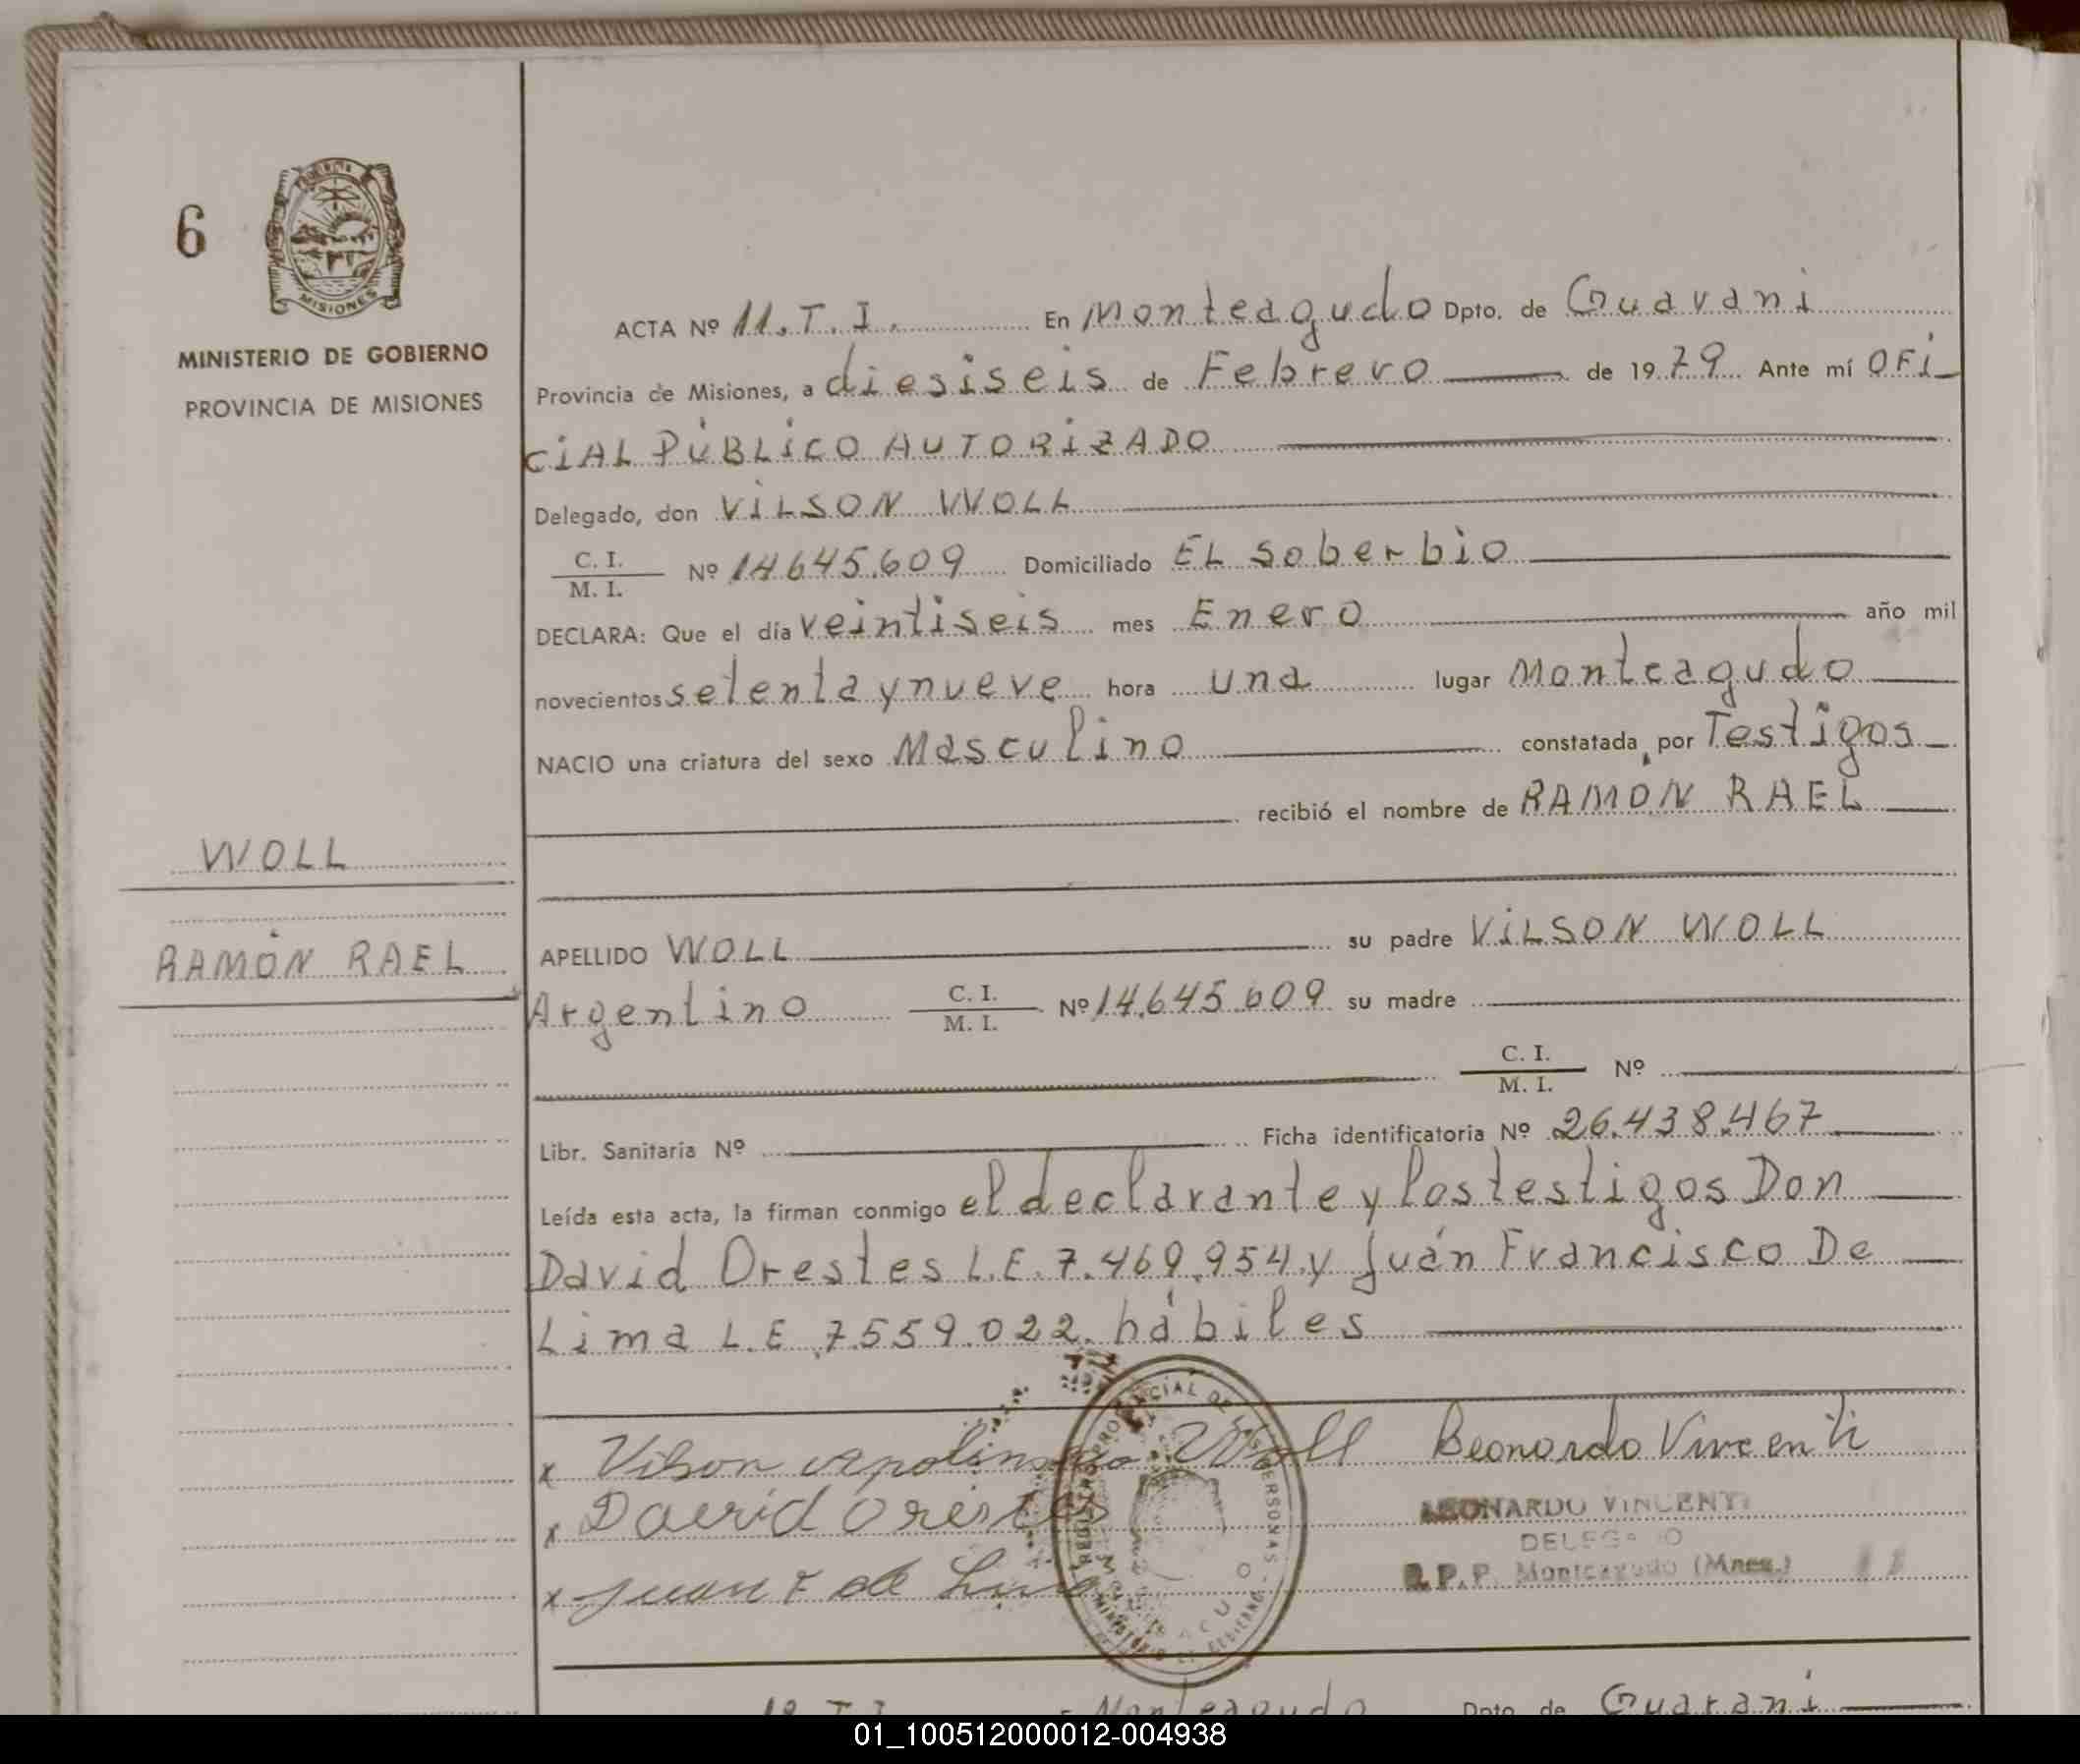 6
MISIONES
MINISTERIO DE GOBIERNO
PROVINCIA DE MISIONES
WOLL
RAMÓN RAEL
ACTA Nº 11.T.I. En Monteagudo Dpto. de Guarani
Provincia de Misiones, a diesiseis de Febrero de 1979 Ante mí OFI
CIAL PÚBLICO AUTORIZADO
Delegado, don VILSON WOLL
C. I.
M. I.
Nº 14645.609 Domiciliado EL Soberbio
DECLARA: Que el día veintiseis mes Enero año mil
novecientos setenta y nueve hora una lugar Monteagudo
NACIO una criatura del sexo Masculino constatada por Testigos
recibió el nombre de RAMON RAEL
APELLIDO WOLL su padre VILSON WOLL
Argentino C. I. M. I. Nº 14.645.609 su madre
C. I. M. I. Nº
Libr. Sanitaria Nº Ficha identificatoria Nº 26.438.467
Leída esta acta, la firman conmigo el declarante y los testigos Don
David Orestes L.E. 7.469.954 y Juán Francisco De
Lima L.E 7.559.022. hábiles
Vilson Woll Leonardo Vincenti
David Orestes
LEONARDO VINCENTI
DELEGADO
Juan F de Lima
R.P.P. Monteagudo (Mnes.) 11
Monteagudo Dpto de Guarani
01_100512000012-004938